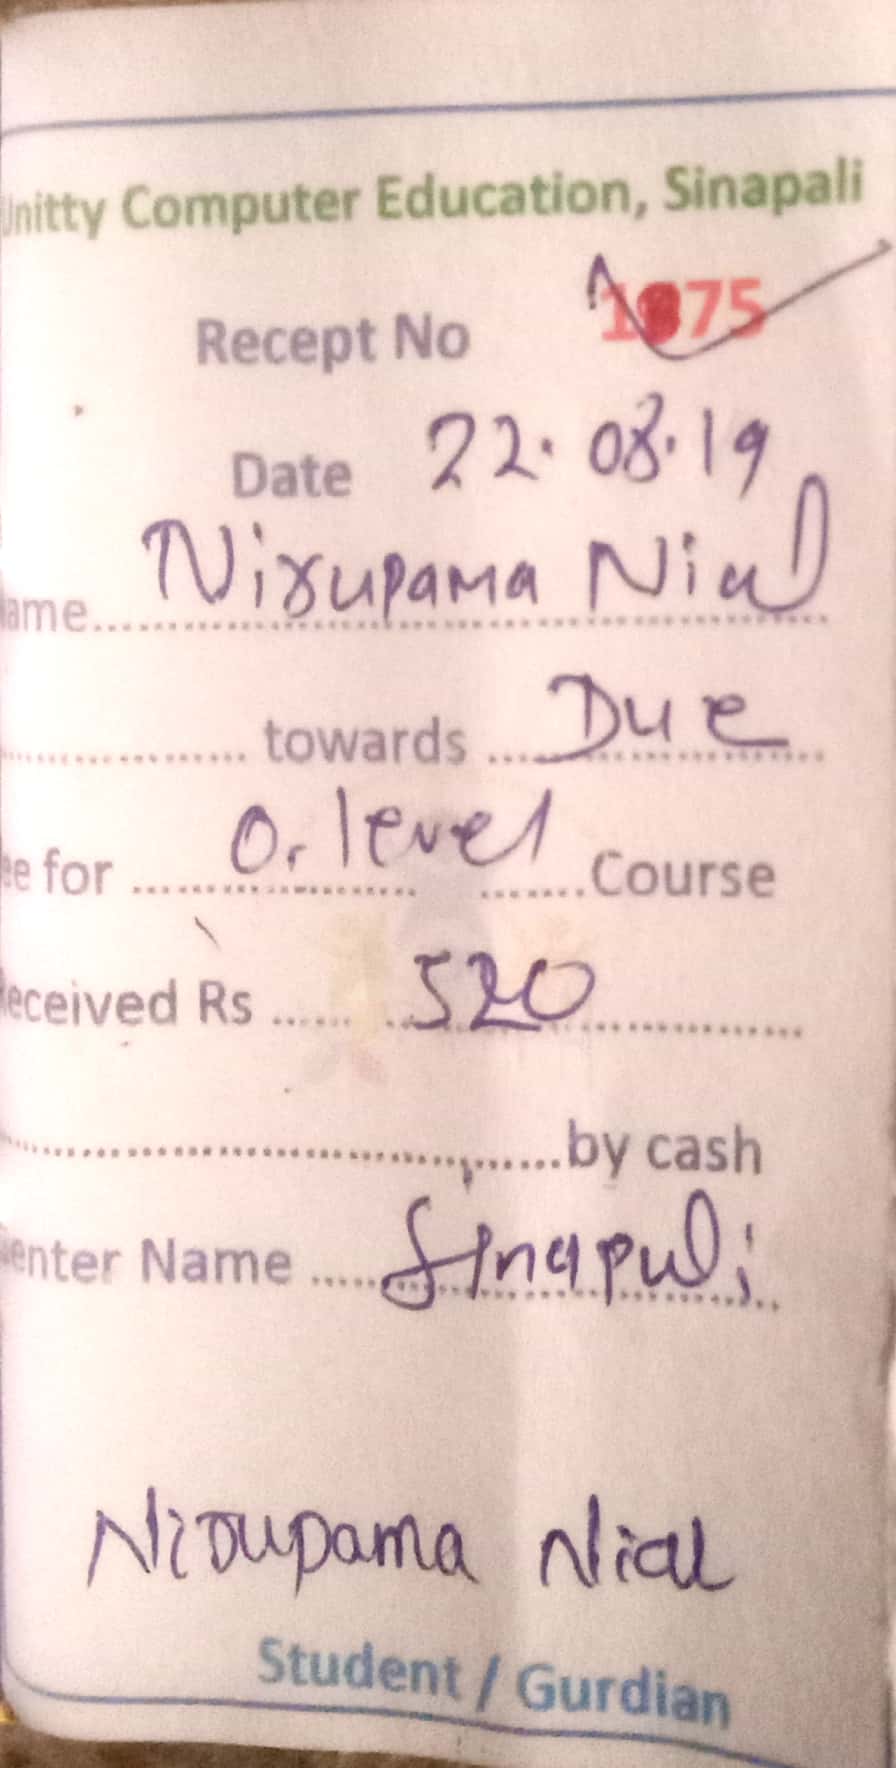 Unitty Computer Education, Sinapali
Recept No 1975
Date 22.08.19
ame Nirupama Nial
towards Due
ee for O. level Course
eceived Rs 520
by cash
enter Name Sinapali
Nirupama Nial
Student / Gurdian